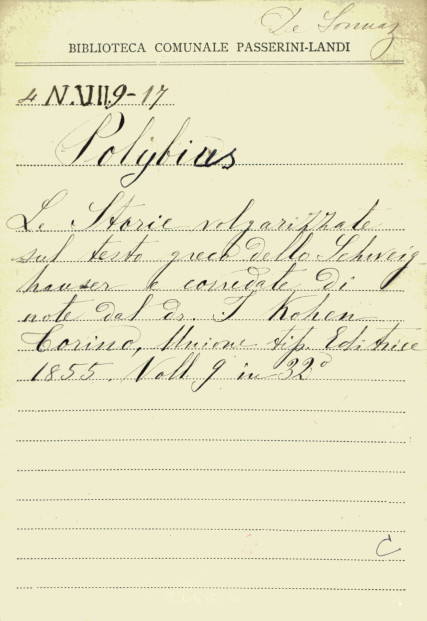 De Sonnaz
BIBLIOTECA COMUNALE PASSERINI-LANDI
4 N.VIII.9-17
Polÿbius
Le Storie volgarizzate
sul testo greco dello Schweig-
hauser e corredate di
note dal dr. I Kohen
Torino, Unione tip. Editrice
1855. Voll. 9 in 32°
C